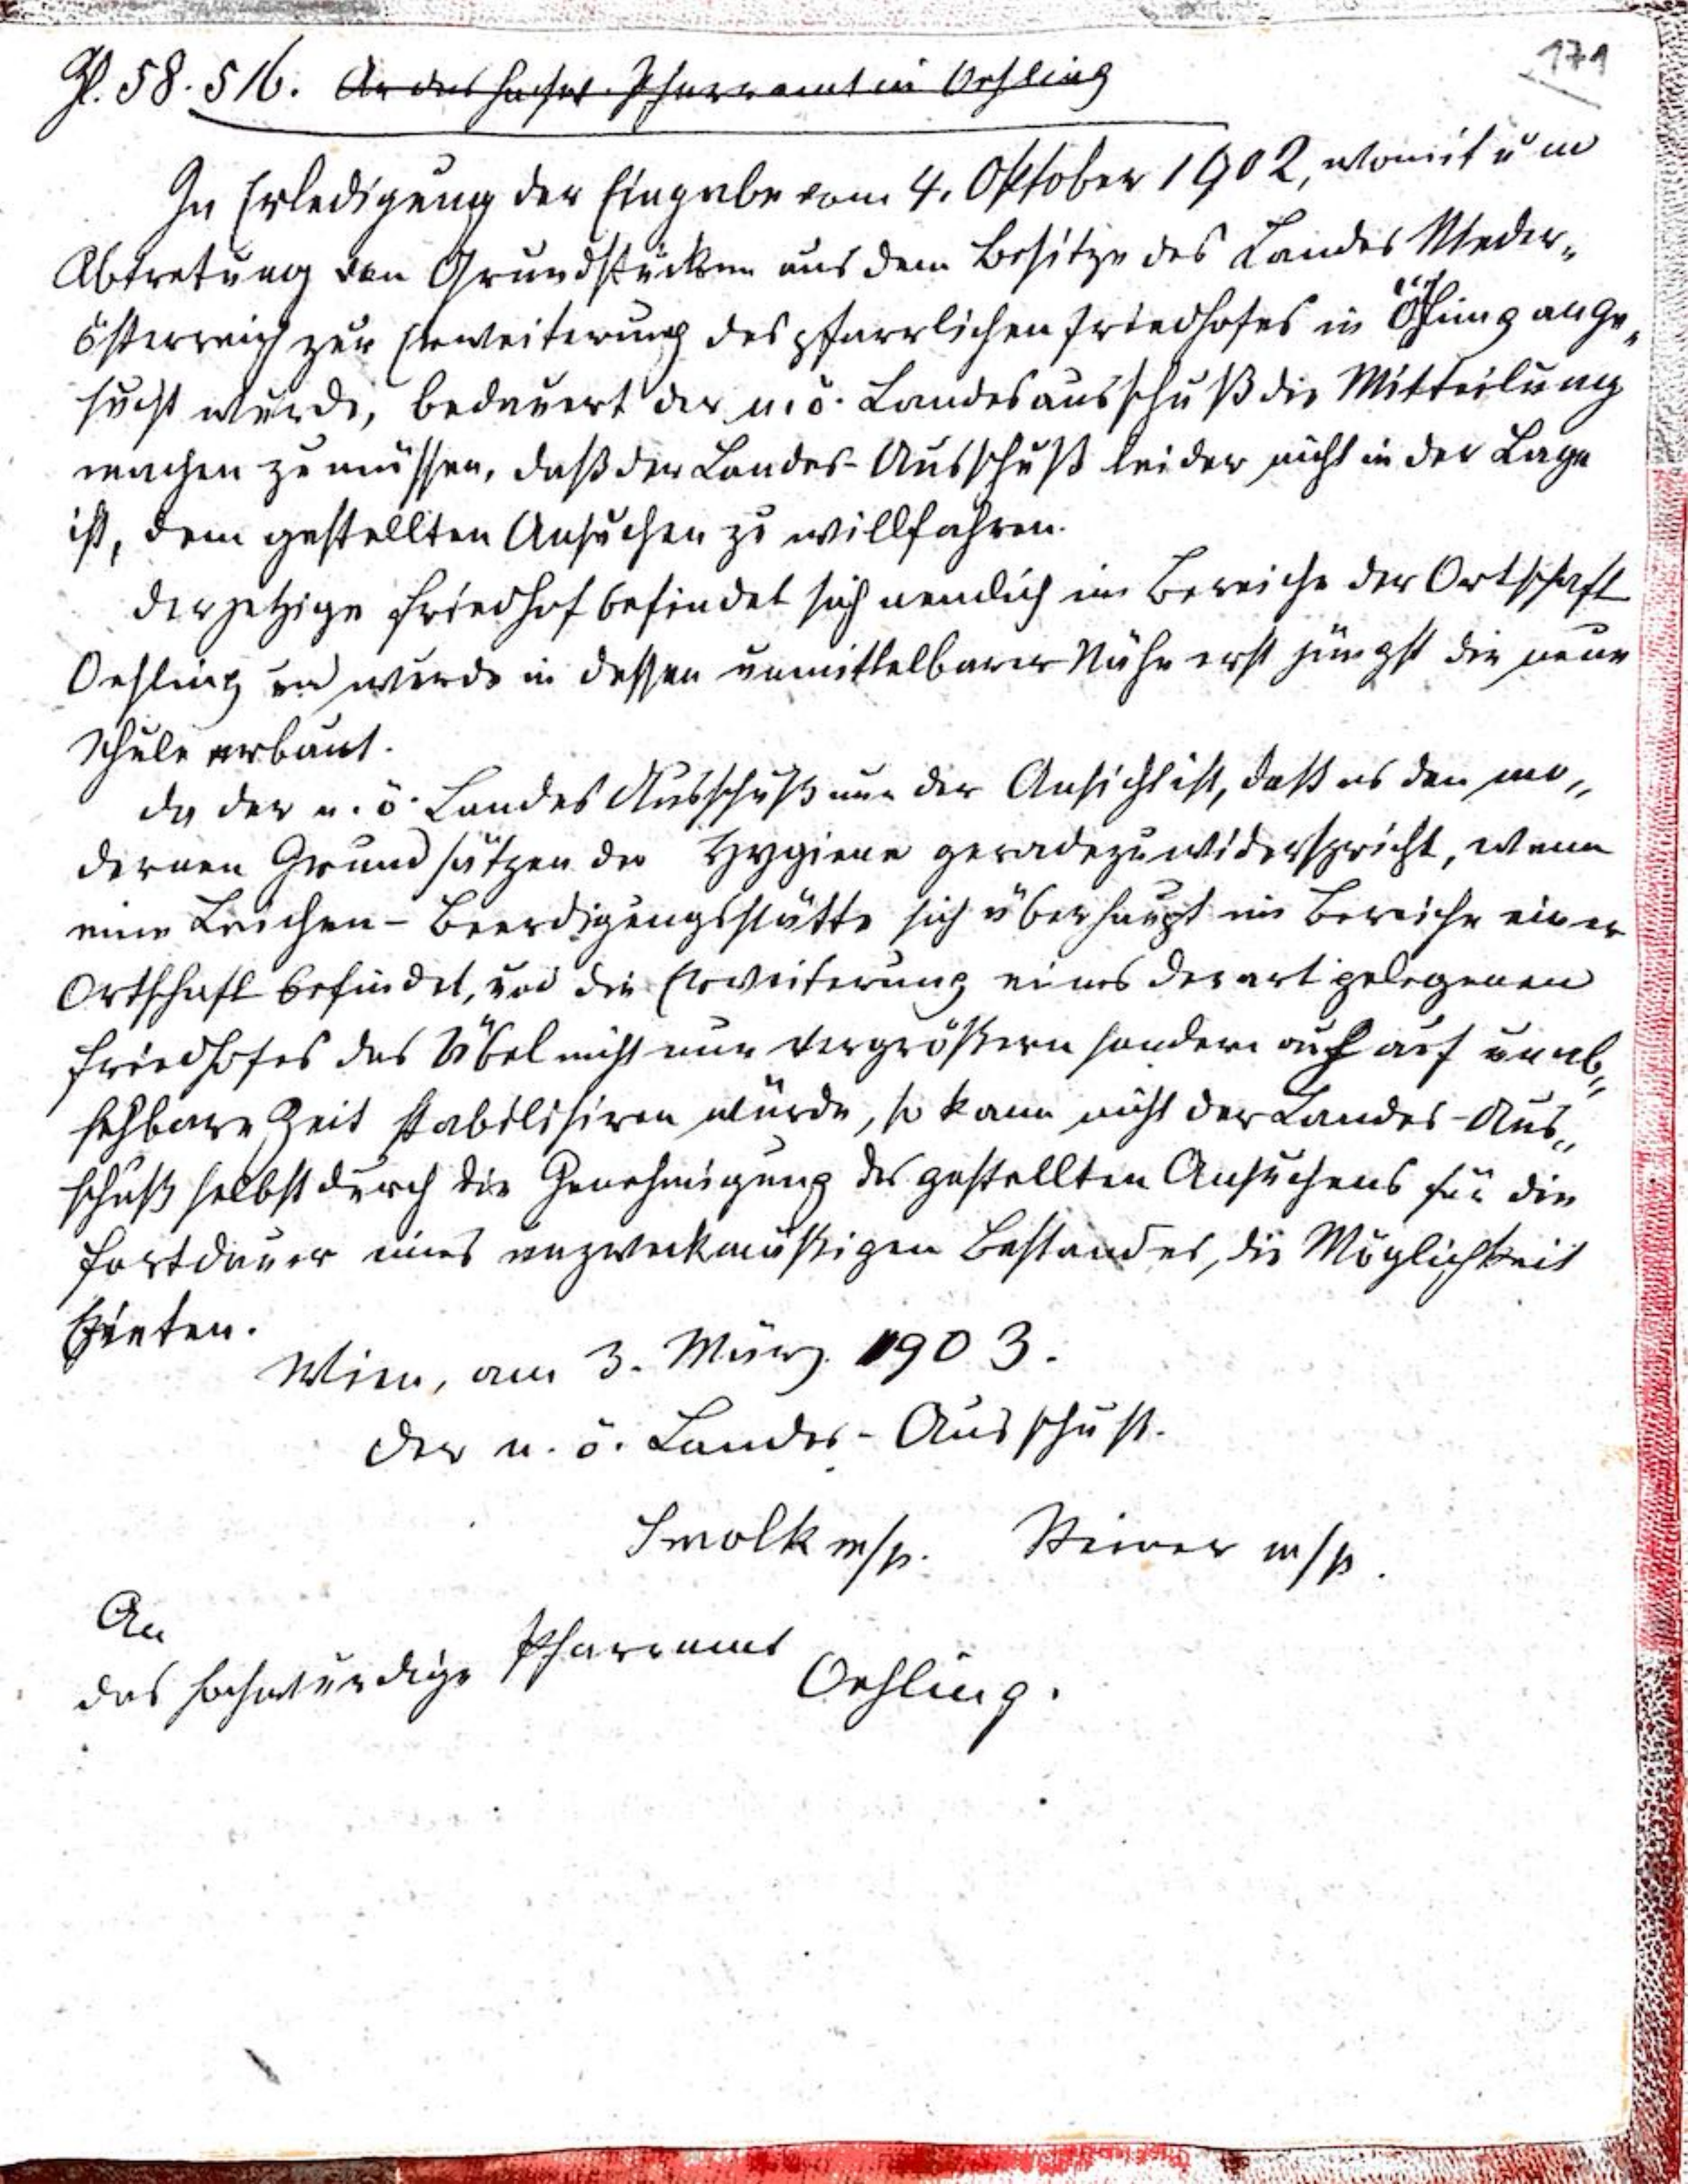 171
Zl. 58.516. An das hochw. Pfarramt in Oehling
In Erledigung der Eingabe vom 4. Oktober 1902, womit um
Abtretung von Grundstücken aus dem Besitze des Landes Nieder-
österreich zur Erweiterung des pfarrlichen Friedhofes in Öhling ange-
sucht wurde, bedauert der n.ö. Landesausschuß die Mitteilung
machen zu müssen, daß der Landes-Ausschuß leider nicht in der Lage
ist, dem gestellten Ansuchen zu willfahren.
Der jetzige Friedhof befindet sich nemlich im Bereiche der Ortschaft
Oehling und wurde in dessen unmittelbarer Nähe erst jüngst die neue
Schule erbaut.
Da der n.ö. Landes Ausschuß nun der Ansicht ist, daß es den mo-
dernen Grundsätzen der Hygiene geradezu widerspricht, wenn
eine Leichen-Beerdigungsstätte sich überhaupt im Bereiche einer
Ortschaft befindet, und die Erweiterung eines derart gelegenen
Friedhofes das Übel nicht nur vergrößern sondern auch auf unab-
sehbare Zeit stabilisiren würde, so kann nicht der Landes-Aus-
schuß selbst durch die Genehmigung des gestellten Ansuchens für die
Fortdauer eines unzweckmäßigen Bestandes, die Möglichkeit
bieten.
Wien, am 3. März 1903.
Der n.ö. Landes-Ausschuß.
Smolk m/p. Steiner m/p.
An
das hochwürdige Pfarramt
Oehling.